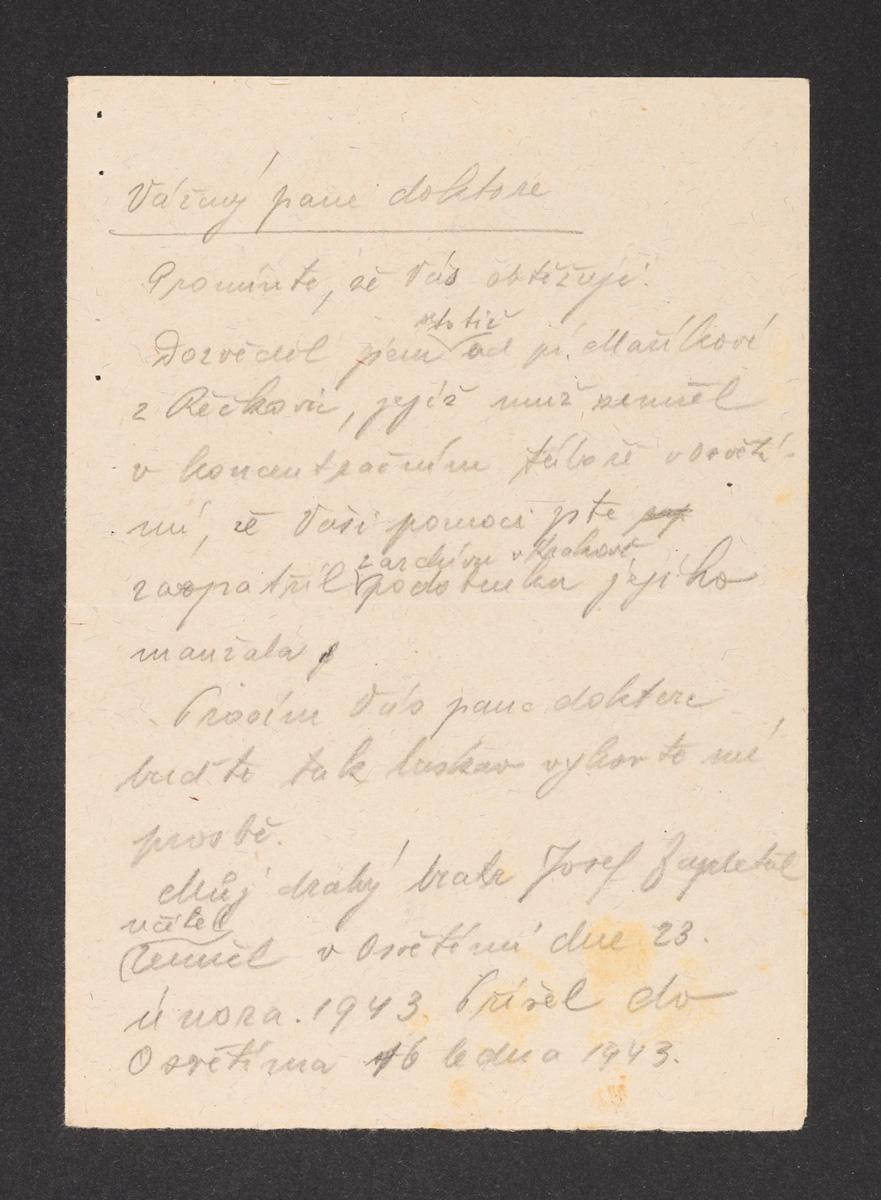 Vážený pane doktore
Promiňte, že Vás obtěžuji.
totiž
Dozvěděl jsem od pí. Maříkové
z Řečkovic, jejíž muž zemřel
v koncentračním táboře v Osvětí-
mi, že Vaší pomocí jste
z archivu v Krakově
zaopatřil podobenku jejího
manžela
Prosím Vás pane doktore
buďte tak laskav vyhovte mé
prosbě.
Můj drahý bratr Josef Zapletal
učitel
zemřel v Osvětimi dne 23.
února. 1943. Přišel do
Osvětima 16 ledna 1943.